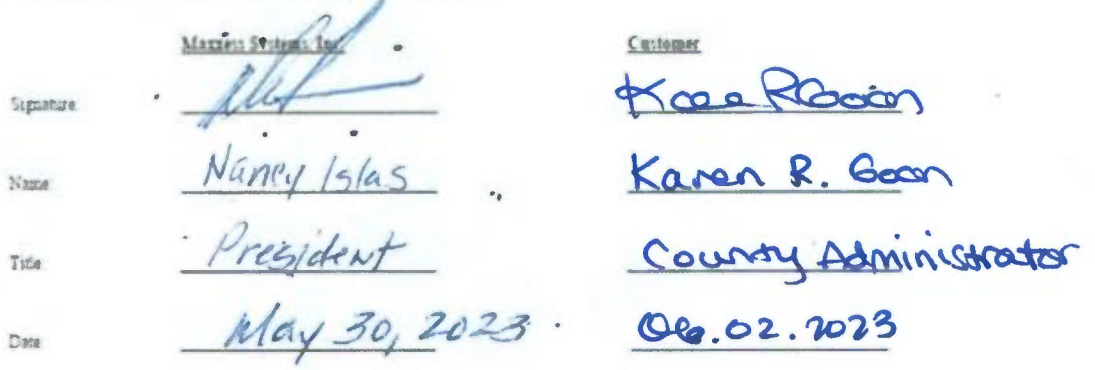 Maxxess Systems, Inc. Customer
Signature Karen R Goon
Name Nancy Islas Karen R. Goon
Title President County Administrator
Date May 30, 2023 06.02.2023